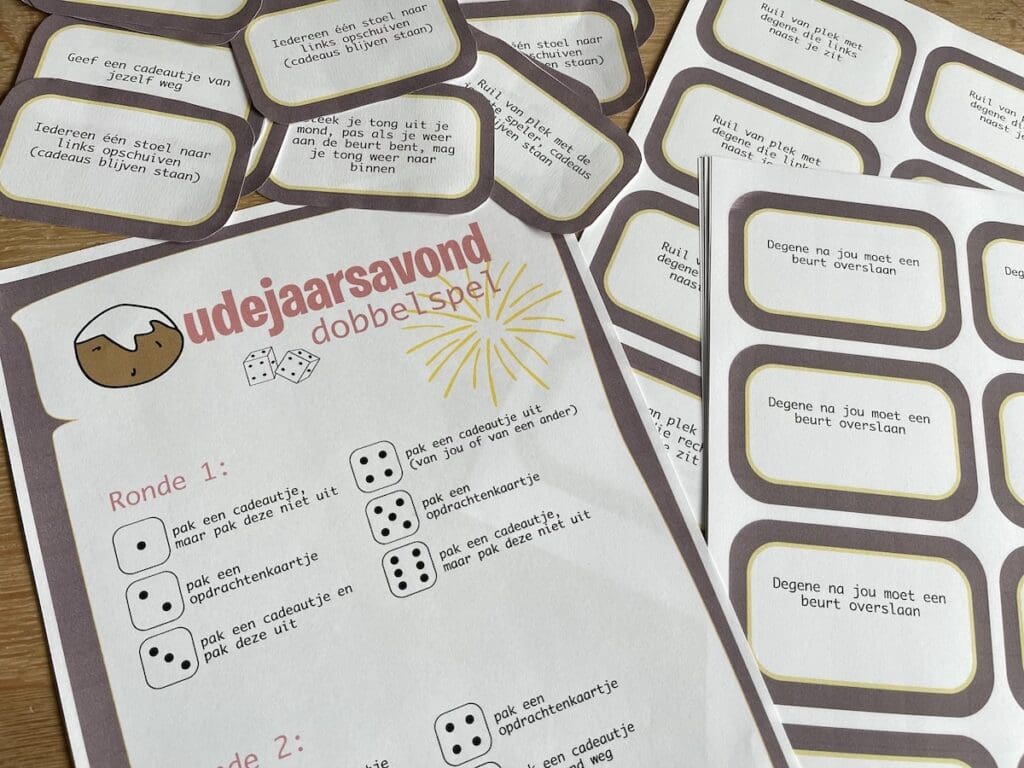 Iedereen één stoel naar
links opschuiven
(cadeaus blijven staan)
Geef een cadeautje van
jezelf weg
Iedereen één stoel naar
links opschuiven
(cadeaus blijven staan)
je tong uit je
mond, pas als je weer
aan de beurt bent, mag
je tong weer naar
binnen
één stoel naar
opschuiven
blijven staan)
Ruil van plek met de
speler, cadeaus
blijven staan
Ruil van plek met
degene die links
naast je zit
Ruil van
degene
naast
Ruil van plek met
degene die links
naast je zit
Ruil
degene
naast
van plek
die
je zit
Degene na jou moet een
beurt overslaan
Degene na jou moet een
beurt overslaan
Degene na jou moet een
beurt overslaan
udejaarsavond
dobbelspel
Ronde 1:
pak een cadeautje,
maar pak deze niet uit
pak een
opdrachtenkaartje
pak een cadeautje en
pak deze uit
pak een cadeautje uit
(van jou of van een ander)
pak een
opdrachtenkaartje
pak een cadeautje,
maar pak deze niet uit
2:
pak een
opdrachtenkaartje
een cadeautje
weg